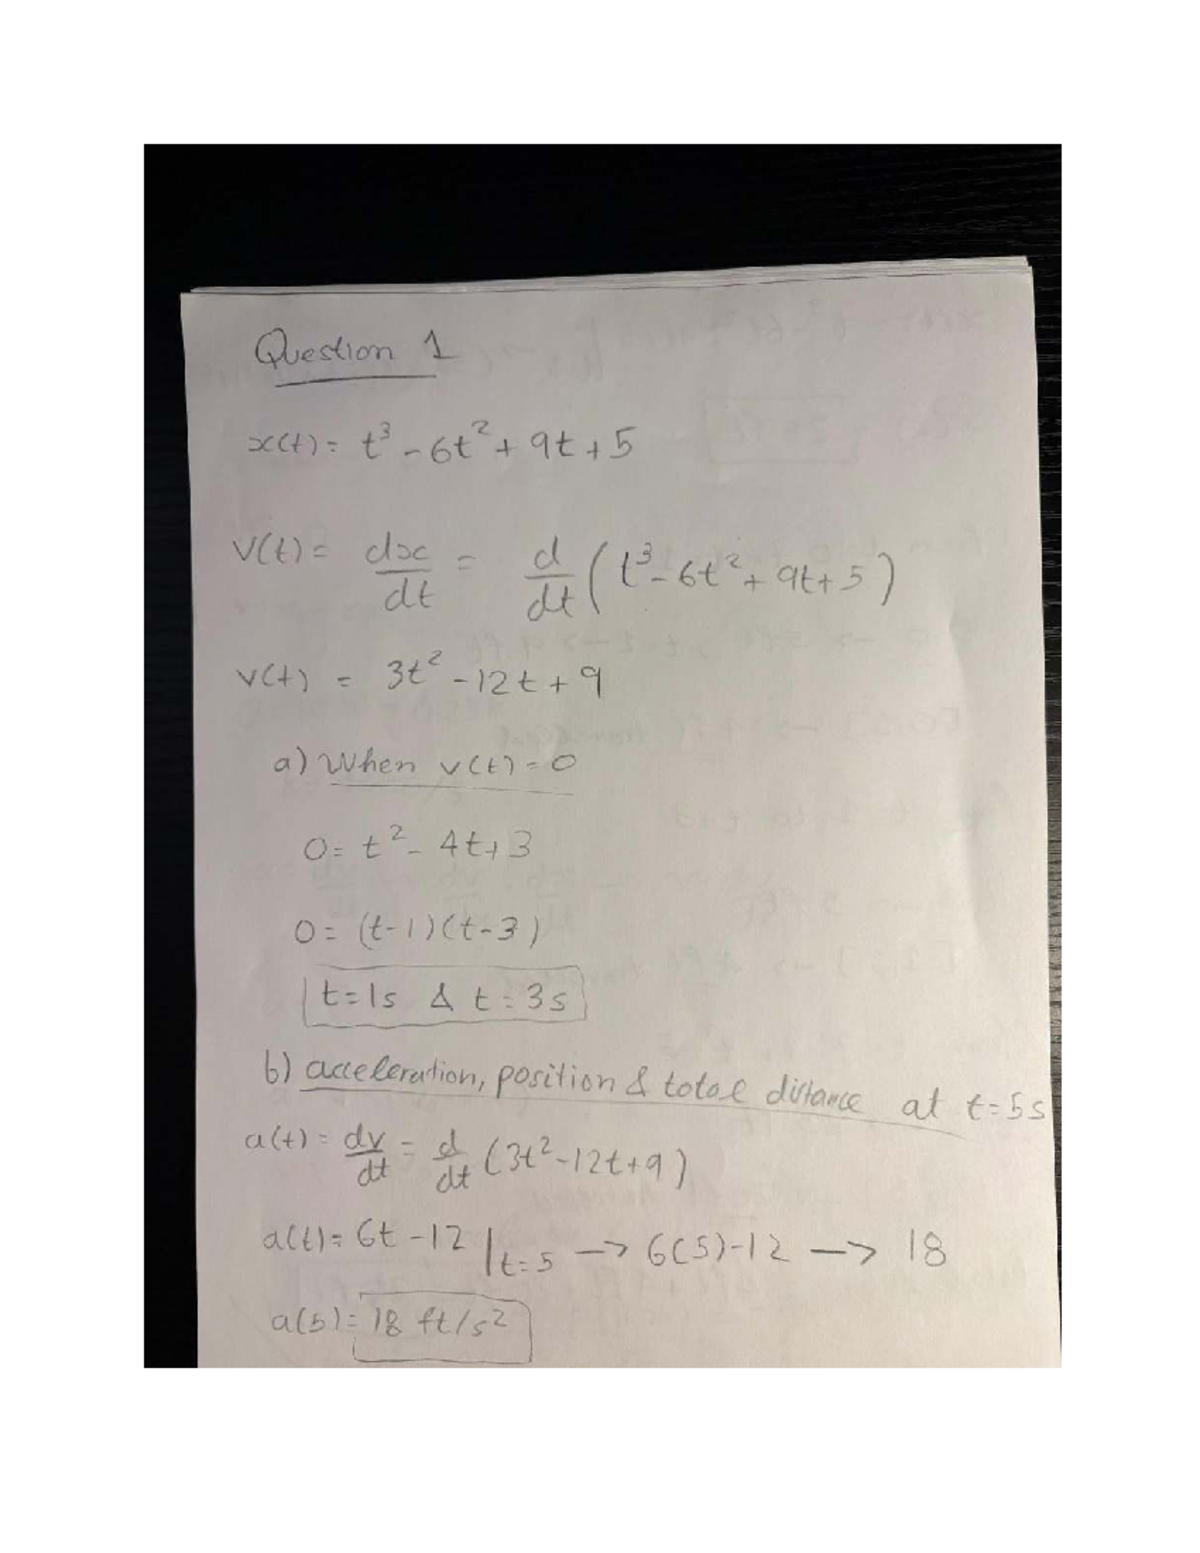 Question 1
x(t) = t³ - 6t² + 9t + 5
V(t) = dx/dt = d/dt (t³ - 6t² + 9t + 5)
v(t) = 3t² - 12t + 9
a) When v(t) = 0
0 = t² - 4t + 3
0 = (t-1)(t-3)
t = 1s & t = 3s
b) acceleration, position & total distance at t = 5s
a(t) = dv/dt = d/dt (3t² - 12t + 9)
a(t) = 6t - 12 |t=5 -> 6(5) - 12 -> 18
a(5) = 18 ft/s²